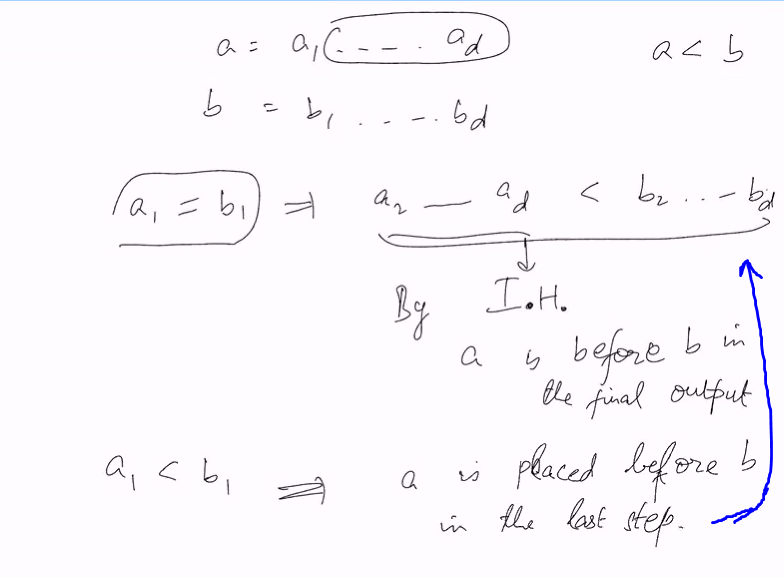 a = a₁ . - - - . a_d    a < b
b = b₁ . - - - . b_d
a₁ = b₁ ⇒ a₂ — a_d < b₂ . . - b_d
By I.H.
a is before b in
the final output
a₁ < b₁ ⇒ a is placed before b
in the last step.